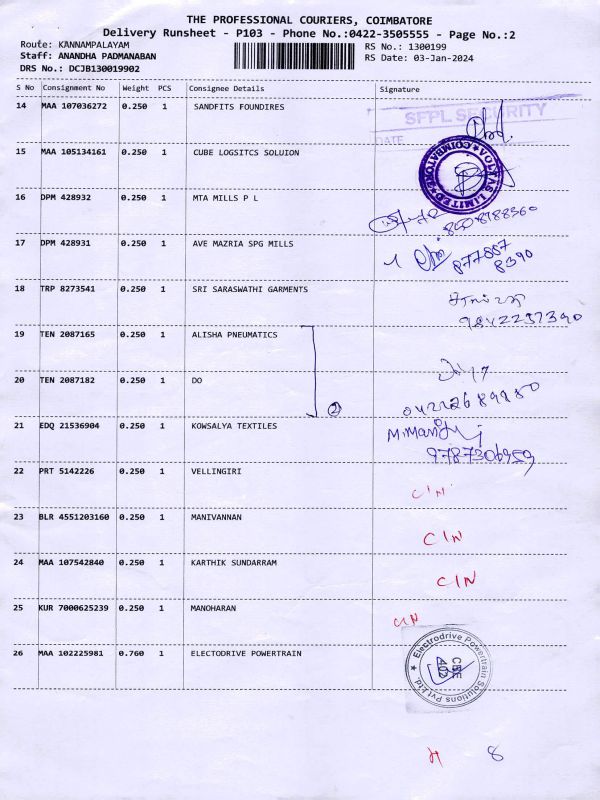 THE PROFESSIONAL COURIERS, COIMBATORE
Delivery Runsheet - P103 - Phone No.:0422-3505555 - Page No.:2
Route: KANNAMPALAYAM RS No.: 1300199
Staff: ANANDHA PADMANABAN RS Date: 03-Jan-2024
DRS No.: DCJB130019902
S No Consignment No Weight PCS Consignee Details Signature
14 MAA 107036272 0.250 1 SANDFITS FOUNDIRES
SFPL SECURITY
DATE
15 MAA 105134161 0.250 1 CUBE LOGSITCS SOLUION
VOLTAS LIMITED COIMBATORE
16 DPM 428932 0.250 1 MTA MILLS P L
17 DPM 428931 0.250 1 AVE MAZRIA SPG MILLS
877887
8390
18 TRP 8273541 0.250 1 SRI SARASWATHI GARMENTS
9842237390
19 TEN 2087165 0.250 1 ALISHA PNEUMATICS
20 TEN 2087182 0.250 1 DO
2
21 EDQ 21536904 0.250 1 KOWSALYA TEXTILES
9787306959
22 PRT 5142226 0.250 1 VELLINGIRI
C/N
23 BLR 4551203160 0.250 1 MANIVANNAN
C/N
24 MAA 107542840 0.250 1 KARTHIK SUNDARRAM
C/N
25 KUR 7000625239 0.250 1 MANOHARAN
C/N
26 MAA 102225981 0.760 1 ELECTODRIVE POWERTRAIN
Electrodrive Powertrain Solutions Pvt Ltd.
CBE
402
8